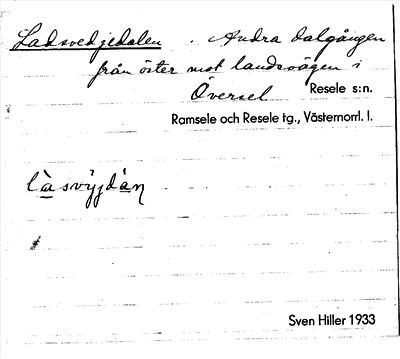 Ladsvedjedalen . Andra dalgången
från öster mot landsvägen i
Översel Resele s:n.
Ramsele och Resele tg., Västernorrl. l.
làsvỳjdàn
Sven Hiller 1933